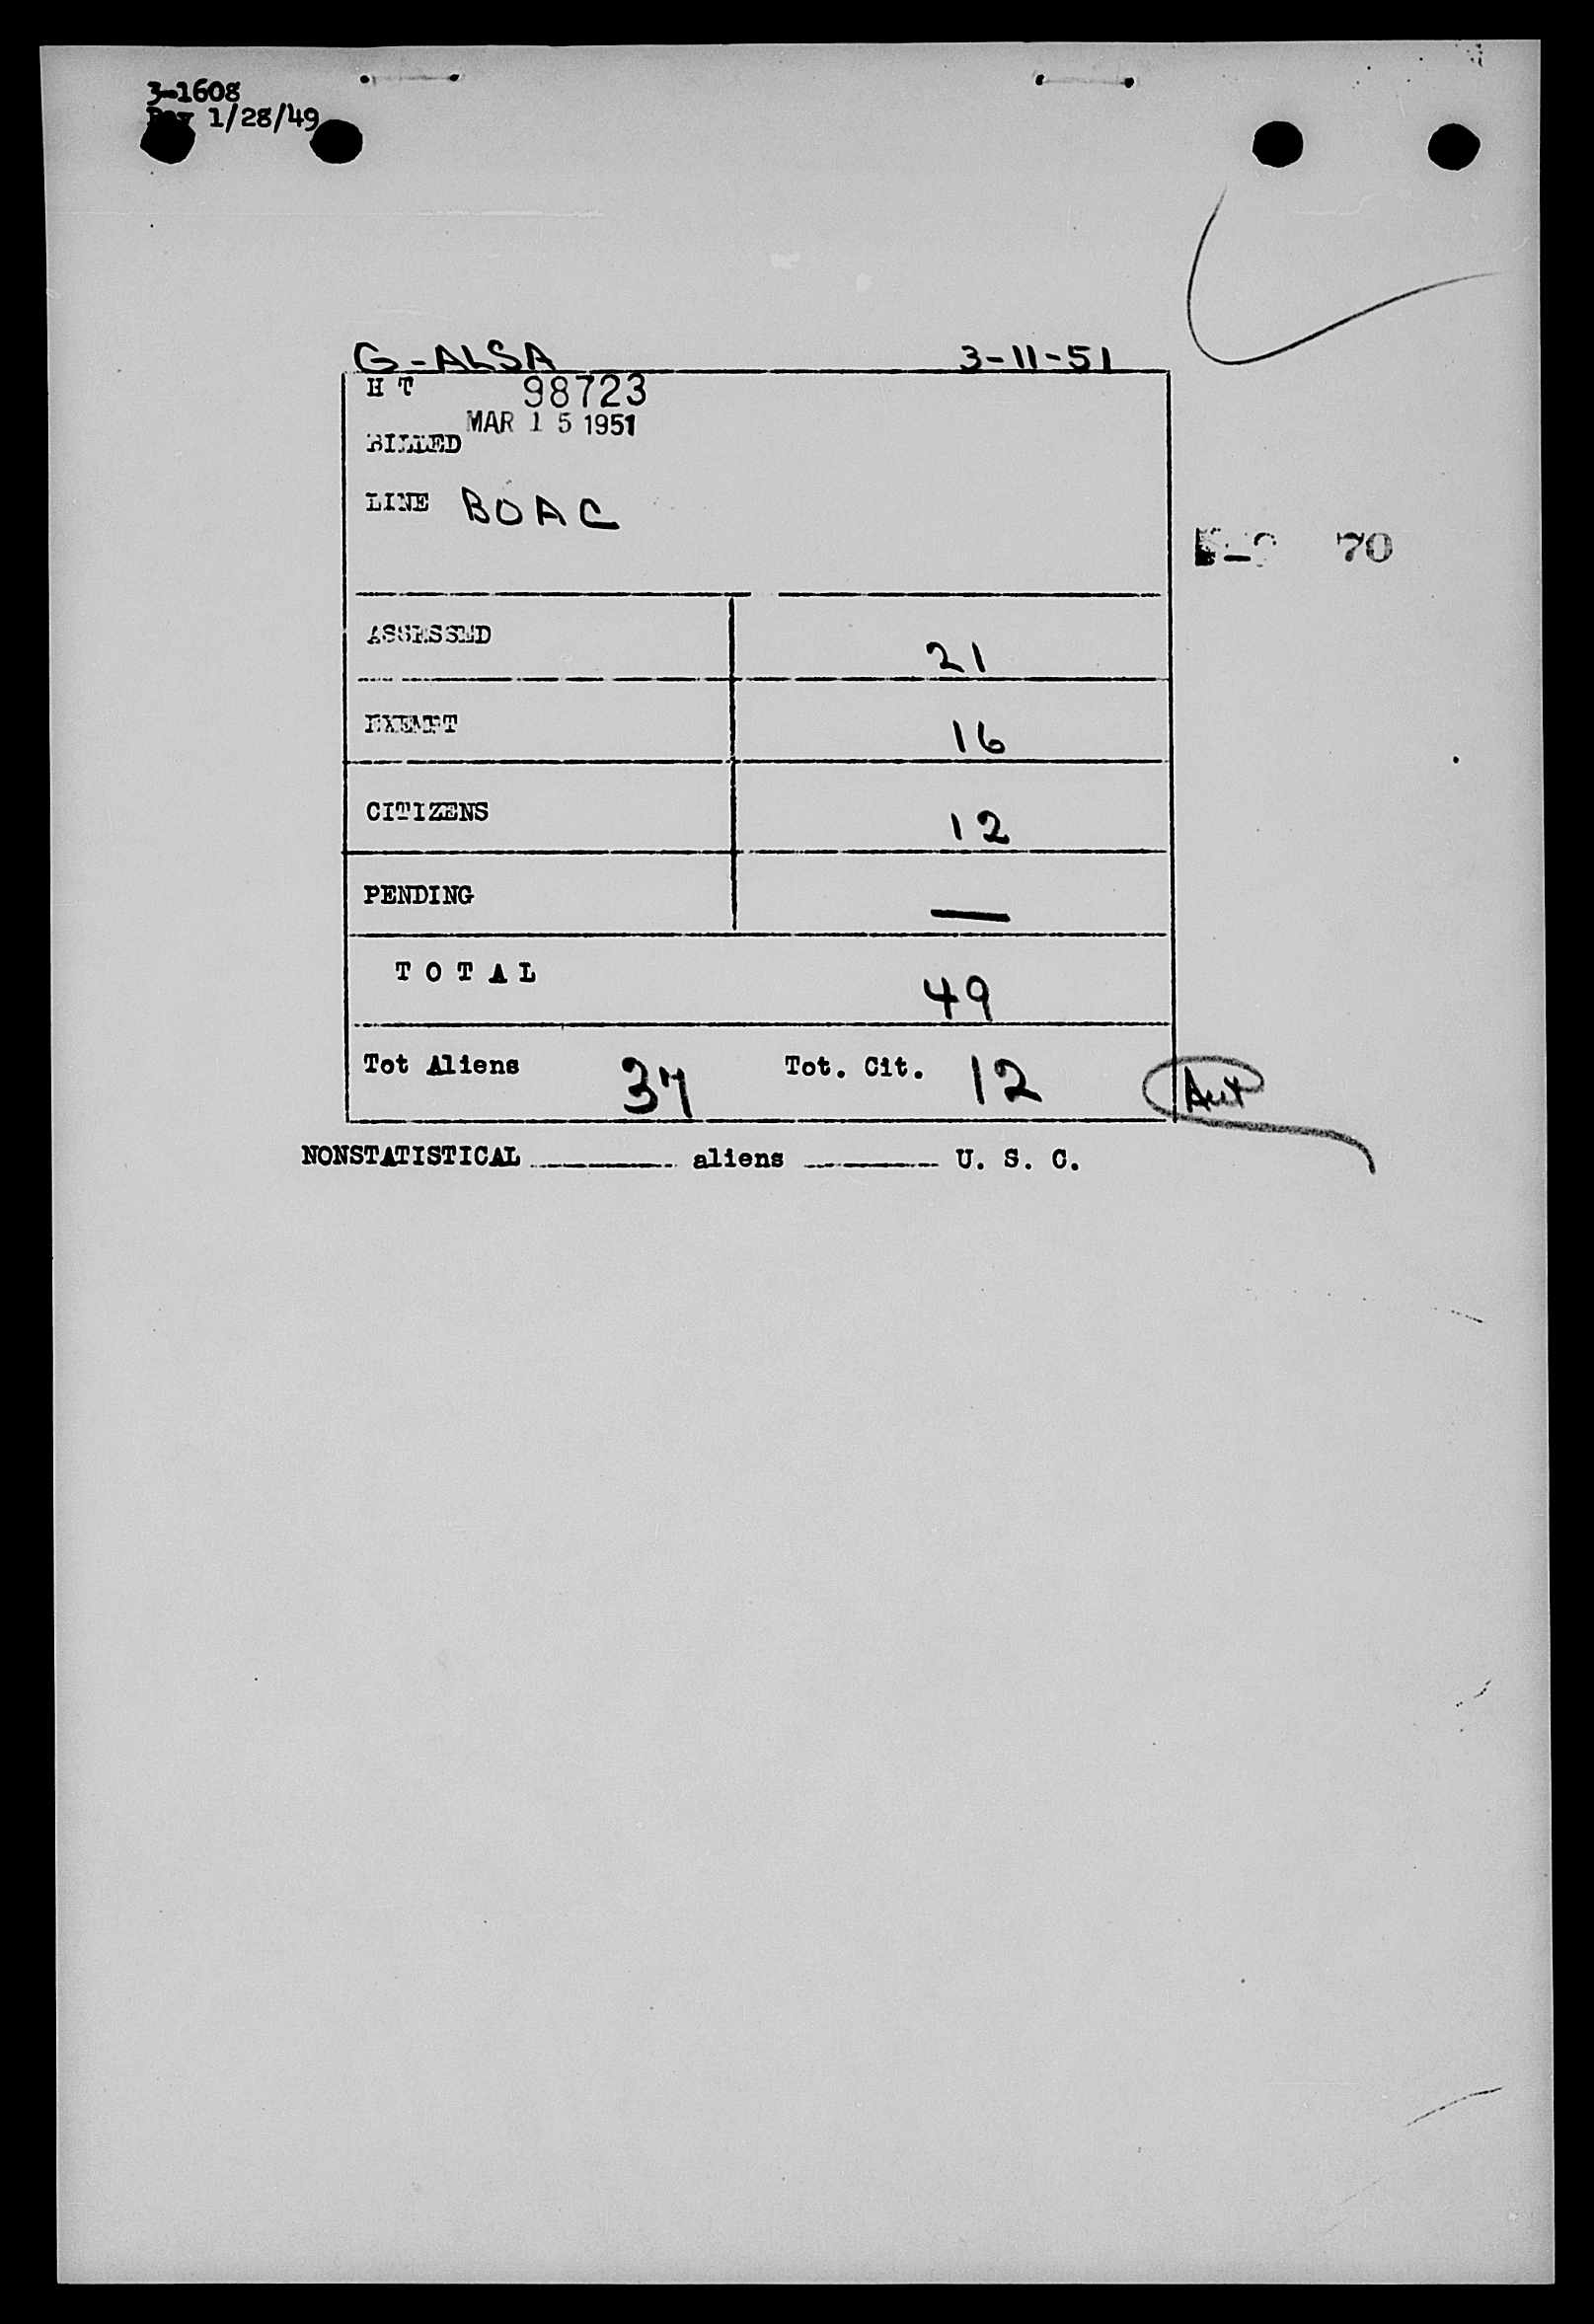 3-1608
Rev 1/28/49
G-ALSA 3-11-51
H T 98723
MAR 15 1951
BILLED
LINE BOAC
70
ASSESSED 21
EXEMPT 16
CITIZENS 12
PENDING —
TOTAL 49
Tot Aliens 37 Tot. Cit. 12
NONSTATISTICAL ________ aliens ________ U. S. C.